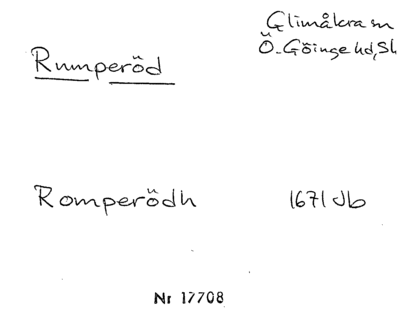 Glimåkra sn
Rumperöd
Ö. Göinge hd, Sk
Romperödh 1671 Jb
Nr 17708